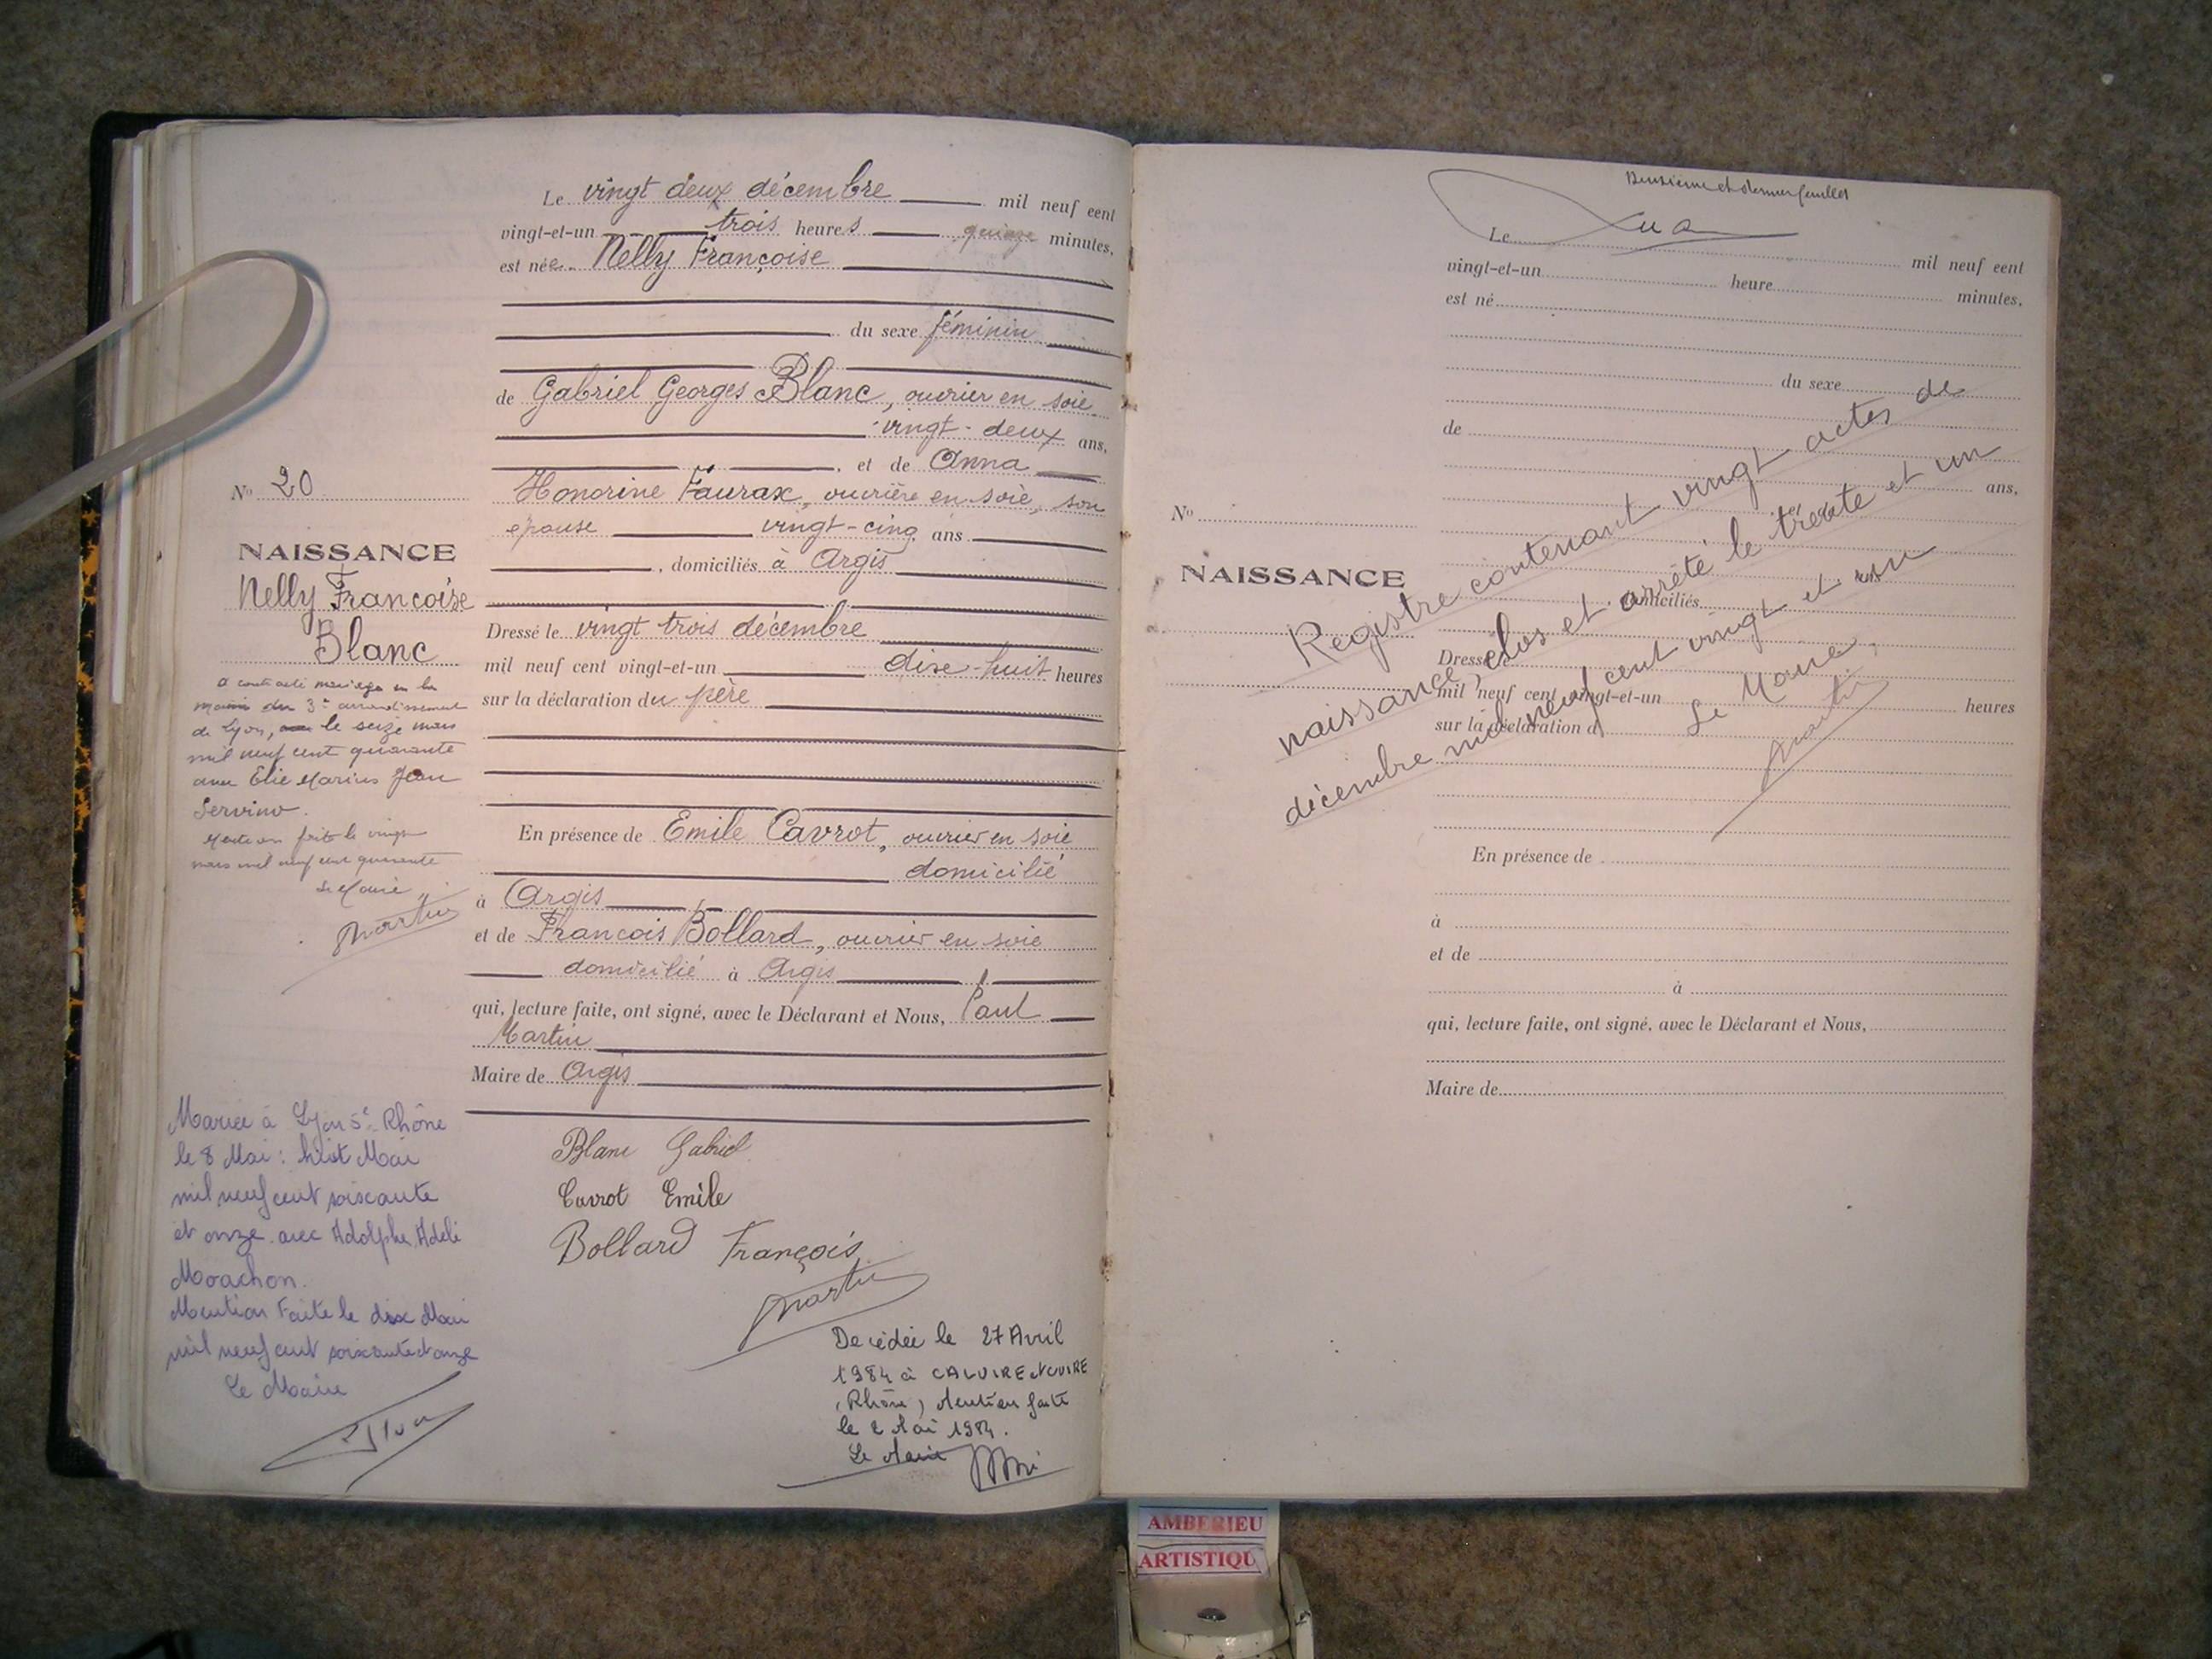 Le vingt deux décembre mil neuf cent
vingt-et-un trois heures quinze minutes,
est née Nelly Françoise
du sexe féminin
de Gabriel Georges Blanc, ouvrier en soie
vingt-deux ans,
, et de Anna
Honorine Faurax, ouvrière en soie, son
épouse vingt-cinq ans
, domiciliés à Argis
Dressé le vingt trois décembre
mil neuf cent vingt-et-un dix-huit heures
sur la déclaration du père
En présence de Emile Cavrot, ouvrier en soie
domicilié
à Argis
et de François Bollard, ouvrier en soie
domicilié à Argis
qui, lecture faite, ont signé, avec le Déclarant et Nous, Paul
Martin
Maire de Argis
Blanc Gabriel
Cavrot Emile
Bollard François
Martin
Decédée le 27 Avril
1984 à CALUIRE et CUIRE
(Rhône) Mention faite
le 2 Mai 1984.
Le Maire
No 20
NAISSANCE
Nelly Françoise
Blanc
a contracté mariage en la
mairie du 3e arrondissement
de Lyon, le seize mars
mil neuf cent quarante
avec Elie Marius Jean
Servino.
Mention faite le vingt
mars mil neuf cent quarante
Le Maire
Martin
Mariée à Lyon 5e Rhône
le 8 Mai : huit Mai
mil neuf cent soixante
et onze avec Adolphe Adeli
Moachon.
Mention Faite le dix Mai
mil neuf cent soixante et onze
Le Maire
Deuxième et dernier feuillet
Le mil neuf cent
vingt-et-un heure minutes,
est né
du sexe
de
ans,
No
NAISSANCE
domiciliés
Dressé le
mil neuf cent vingt-et-un heures
sur la déclaration d
Registre contenant vingt actes de
naissance, clos et arrêté le trente et un
décembre mil neuf cent vingt et un
Le Maire,
Martin
En présence de
à
et de
à
qui, lecture faite, ont signé, avec le Déclarant et Nous,
Maire de
AMBERIEU
ARTISTIQU